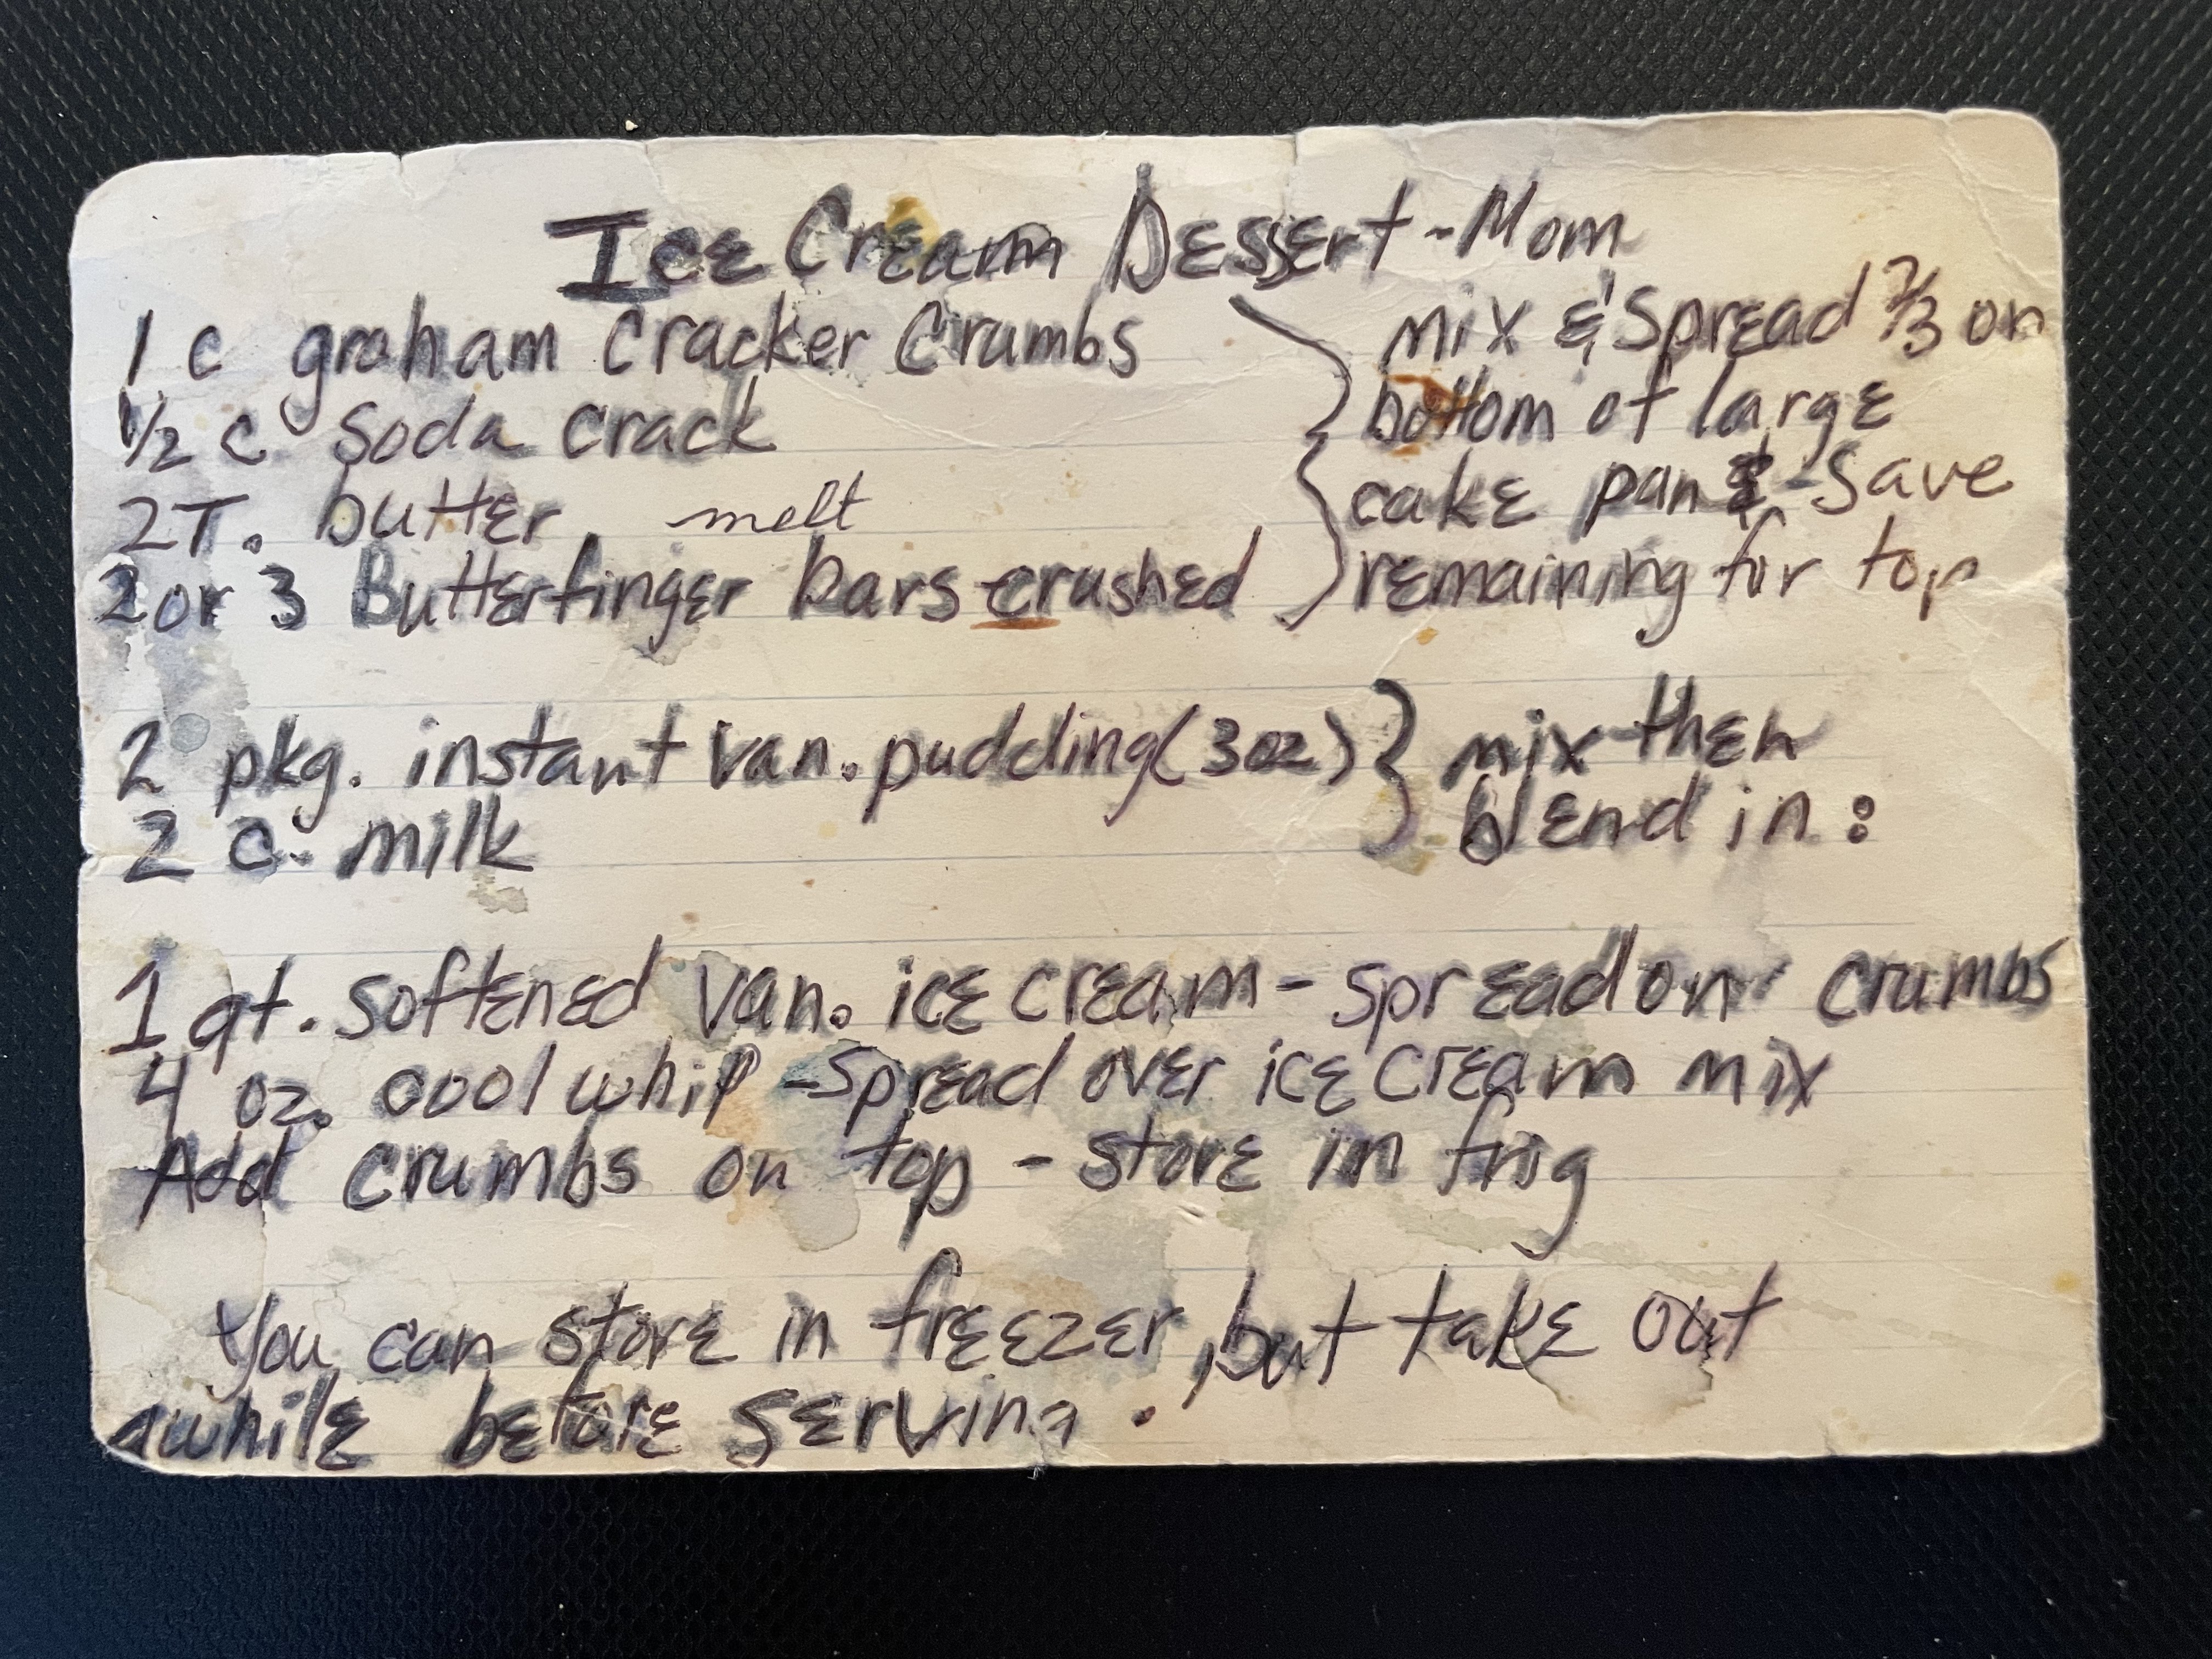 Ice Cream Dessert - Mom
1 c graham cracker crumbs
1/2 c soda crack
2 T. butter melt
2 or 3 Butterfinger bars crushed
mix & spread 2/3 on
bottom of large
cake pan & - save
remaining for top
2 pkg. instant van. pudding (3oz)
2 c. milk
mix then
blend in :
1 qt. softened van. ice cream - spread on crumbs
4 oz. cool whip - spread over ice cream mix
Add crumbs on top - store in frig
You can store in freezer, but take out
awhile before serving.